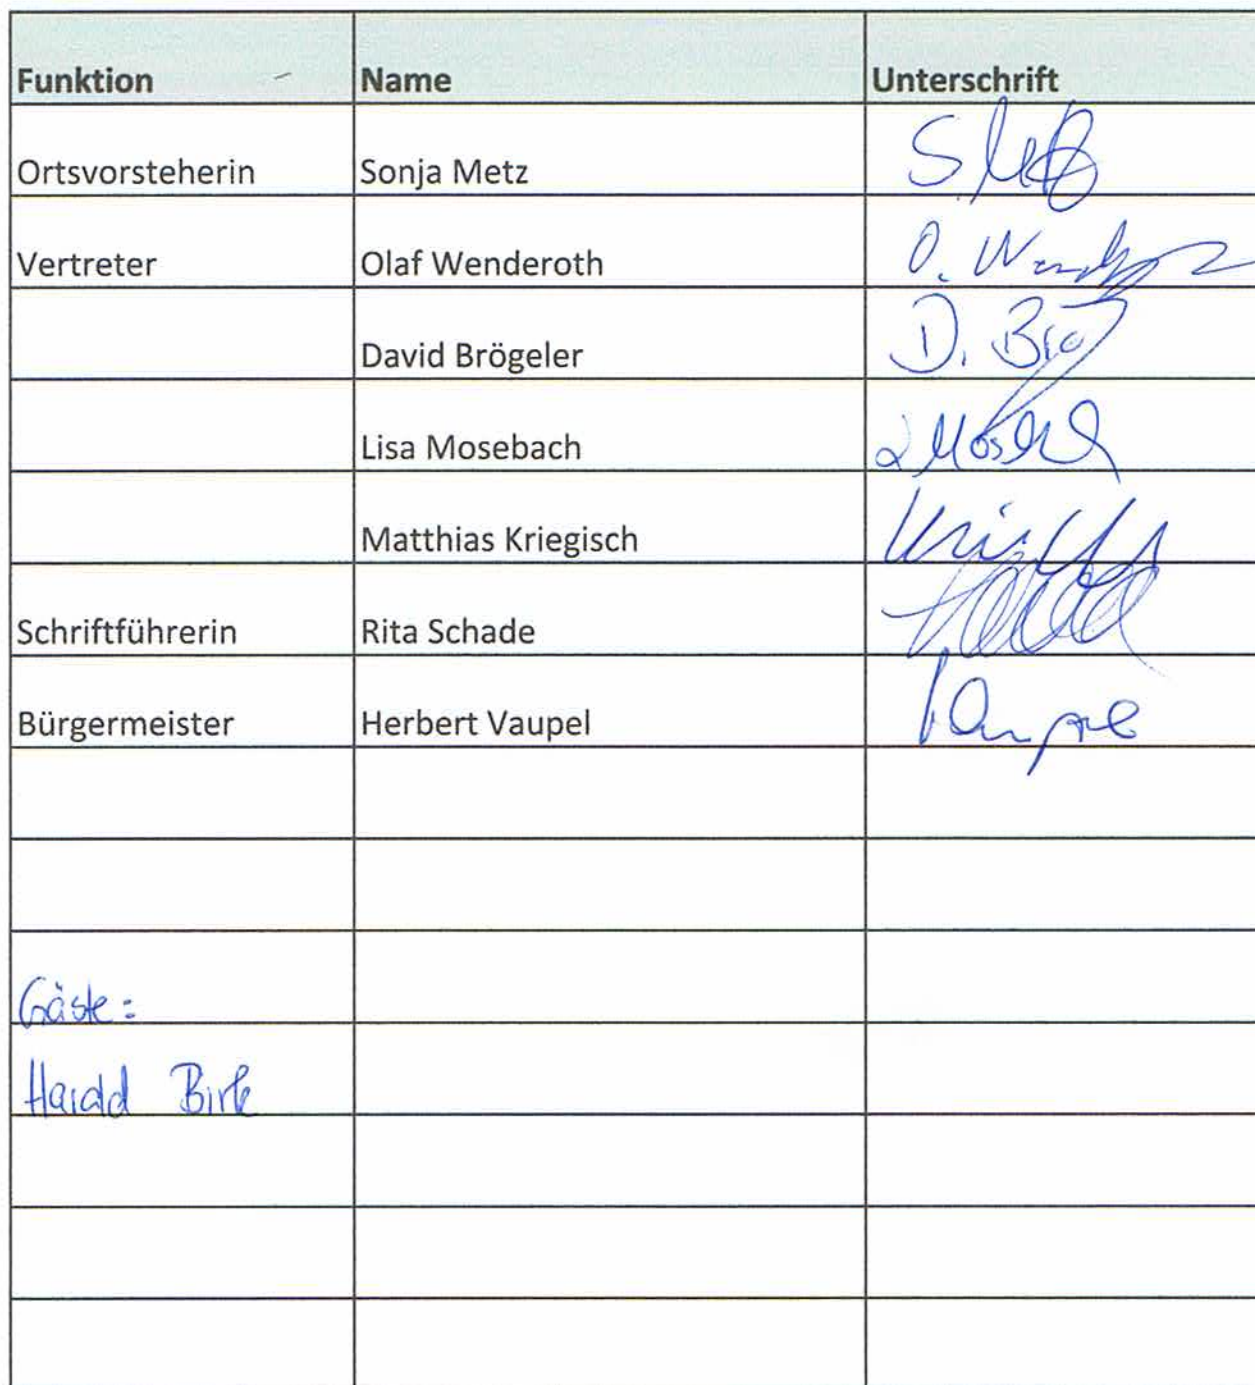 Funktion Name Unterschrift
Ortsvorsteherin Sonja Metz S. Metz
Vertreter Olaf Wenderoth O.
David Brögeler D.
Lisa Mosebach
Matthias Kriegisch
Schriftführerin Rita Schade
Bürgermeister Herbert Vaupel Vaupel
Gäste:
Harald Birk